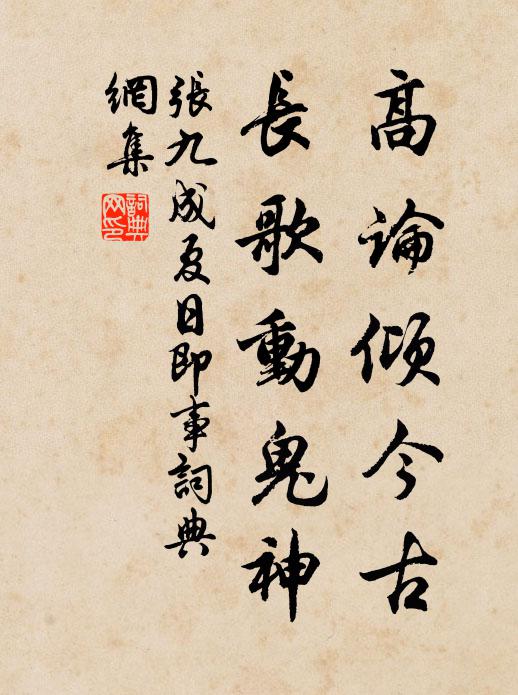 高論傾今古
長歌動鬼神
張九成夏日即事詞典
網集
詞典
网印